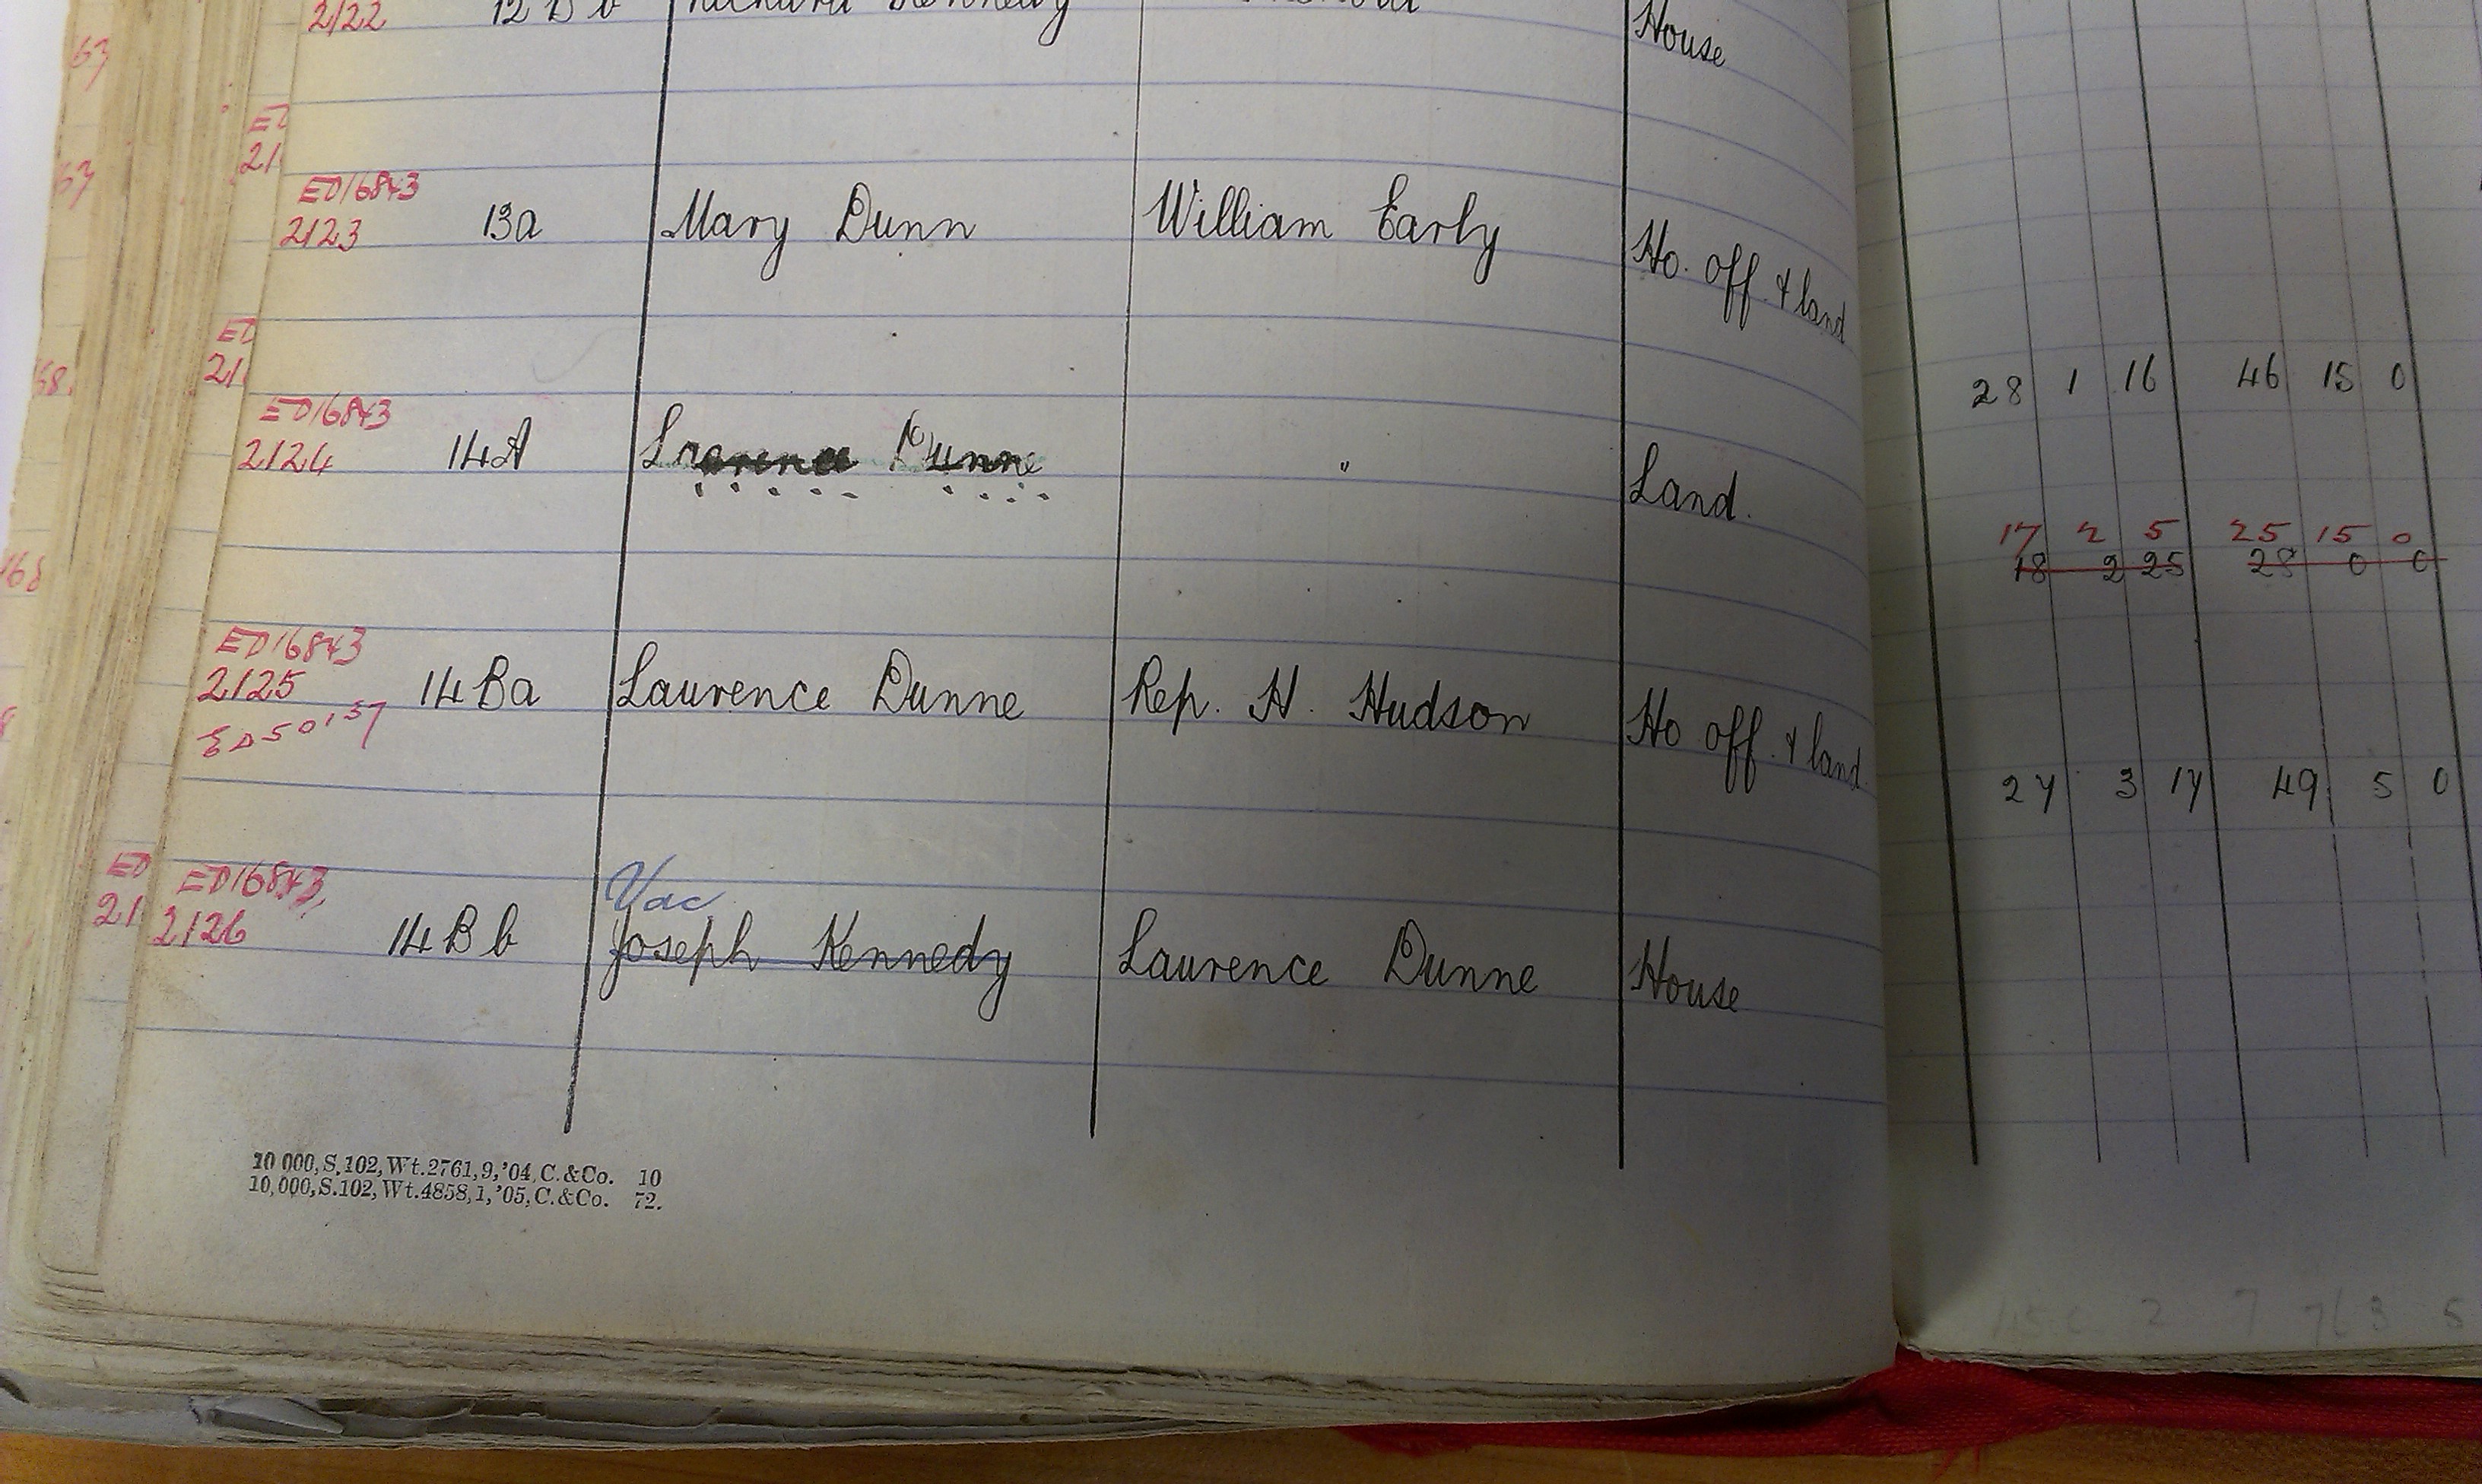 2122 12 B b Richard Kennedy House
ED16843
2123 13a Mary Dunn William Early Ho. off. & land
28 1 16 46 15 0
ED16843
2124 14A Laurence Dunne " Land.
17 2 5 25 15 0
18 2 25 28 0 0
ED16843
2125 14 Ba Laurence Dunne Rep. H. Hudson Ho off. & land.
ED50137
27 3 17 49 5 0
ED16843
Vac
2126 14 B b Joseph Kennedy Laurence Dunne House
10 000, S.102, Wt.2761, 9, '04, C.&Co. 10
10,000, S.102, Wt.4858, 1, '05, C.&Co. 72.